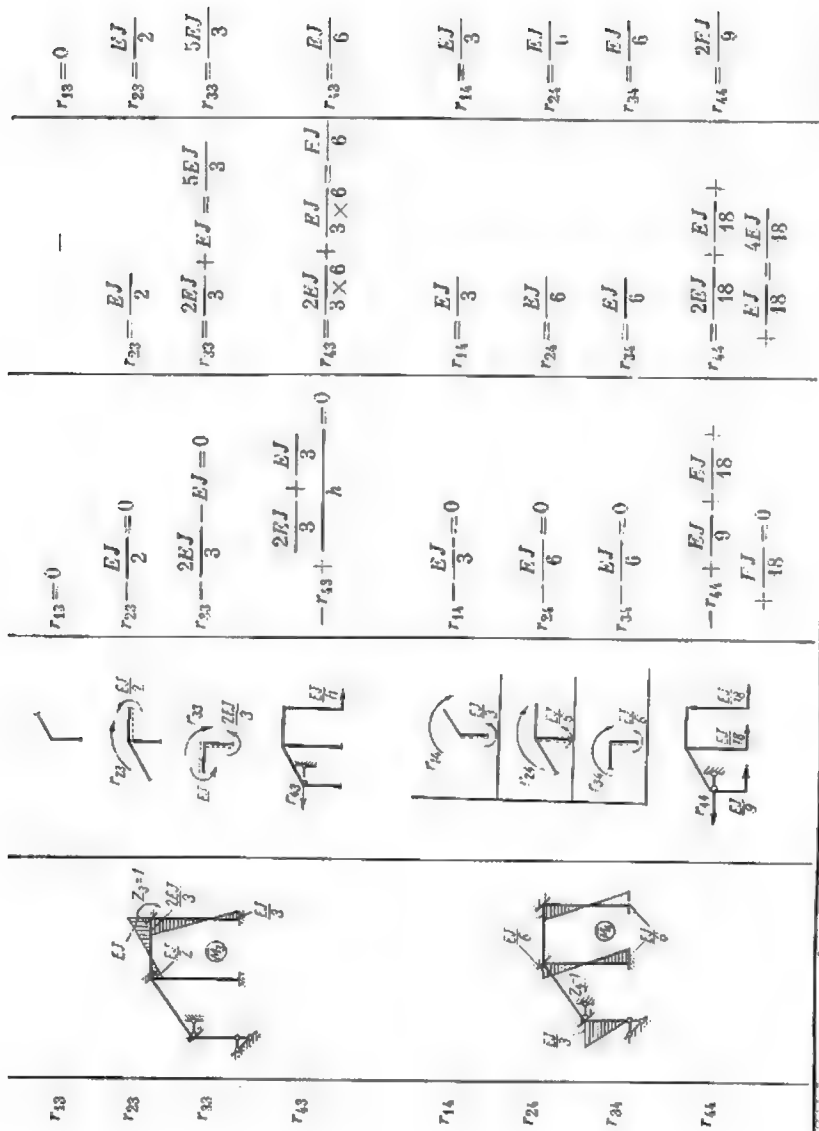 r₁₃
r₁₃=0
—
r₁₃=0
r₂₃
EJ
Z₃=1
2EJ/3
EJ/2
EJ/3
r₂₃
EJ/2
r₂₃−EJ/2=0
r₂₃=EJ/2
r₂₃=EJ/2
r₃₃
EJ
r₃₃
2EJ/3
−2EJ/3−EJ=0
r₃₃=2EJ/3+EJ=5EJ/3
r₃₃=5EJ/3
r₄₃
r₄₃
−r₄₃+(2EJ/3+EJ/3)/h=0
r₄₃=2EJ/3×6+EJ/3×6=EJ/6
r₄₃=EJ/6
r₁₄
r₁₄
EJ/3
r₁₄−EJ/3=0
r₁₄=EJ/3
r₁₄=EJ/3
r₂₄
EJ/3
Z₄=1
EJ/6
r₂₄
r₂₄−EJ/6=0
r₂₄=EJ/6
r₂₄=EJ/
r₃₄
r₃₄
EJ/6
r₃₄−EJ/6=0
r₃₄=EJ/6
r₃₄=EJ/6
r₄₄
r₄₄
EJ/9
EJ/18
EJ/18
−r₄₄+EJ/9+EJ/18+
+EJ/18=0
r₄₄=2EJ/18+EJ/18+
+EJ/18=4EJ/18
r₄₄=2EJ/9